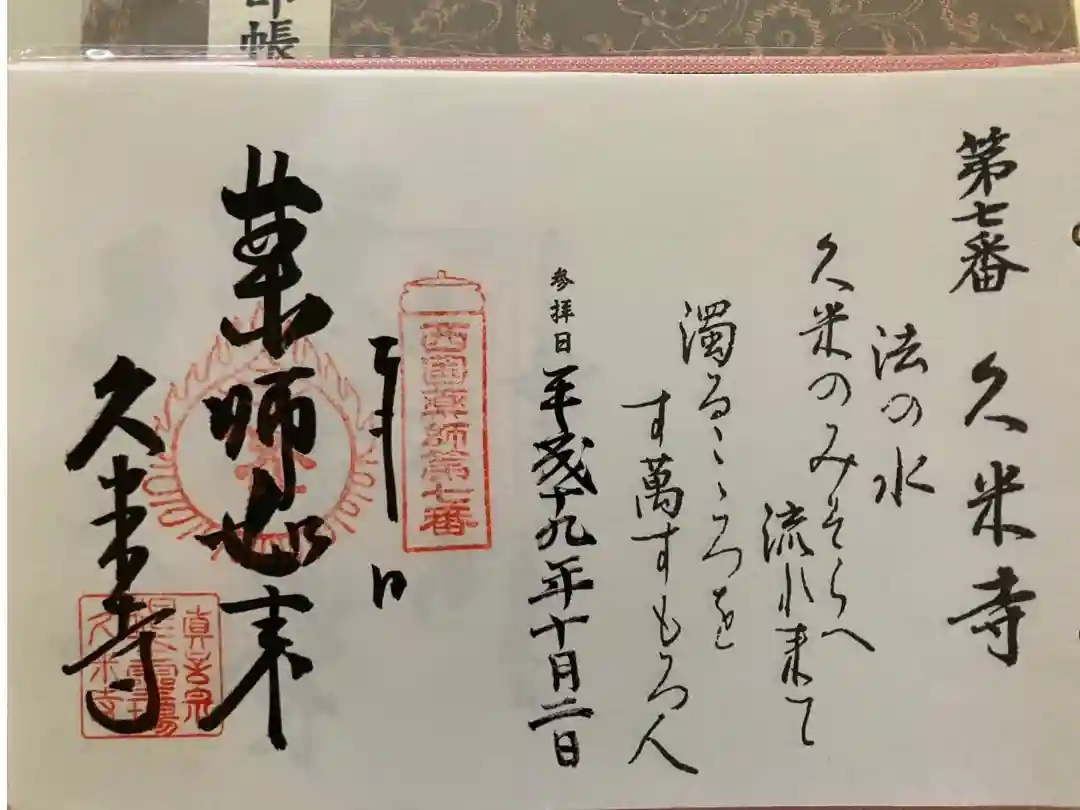 帳
第七番 久米寺
法の水
久米のみそらへ
流れ来て
濁るこゝろを
す萬すもろ人
参拝日 平成十九年十月二日
西国薬師第七番
薬師如来
久米寺
真言宗
根本霊場
久米寺